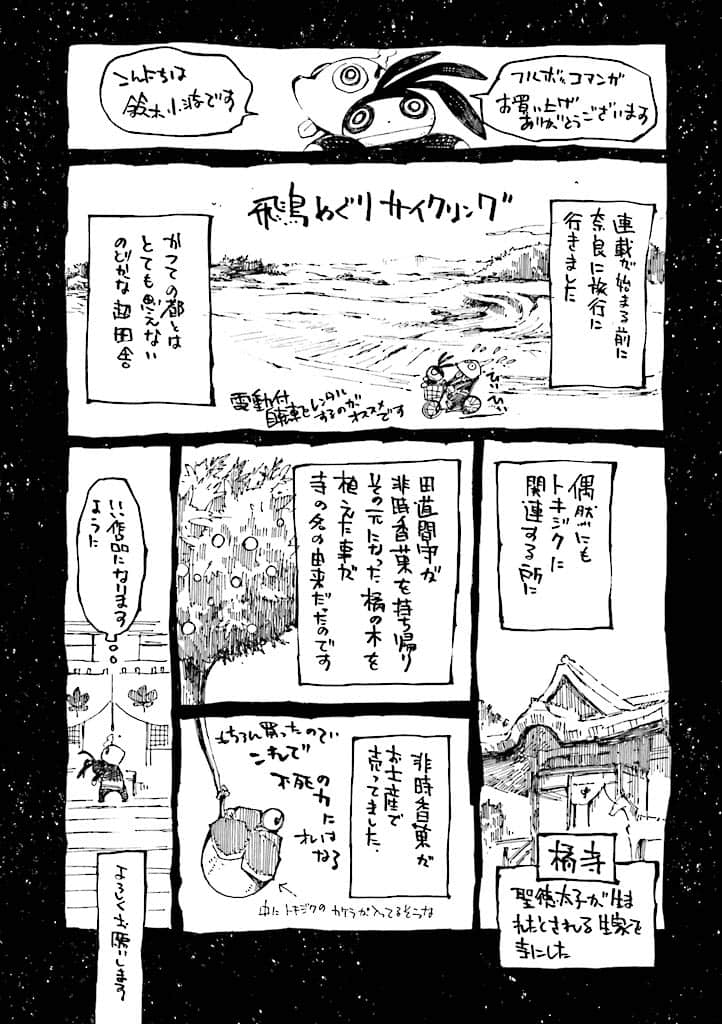 フルボッコマンガ
お買い上げ
ありがとうございます
こんにちは
鈴木小波です
飛鳥めぐりサイクリング
連載が始まる前に
奈良に旅行に
行きました
かつての都とは
とても思えない
のどかな超田舎。
ひぃ
ひぃ
電動付
自転車をレンタル
するのが
オススメです
偶然にも
トキジクに
関連する所に
橘寺
聖徳太子が生ま
れたとされる生家を
寺にした
田道間守が
非時香菓を持ち帰り
その元になった橘の木を
植えた事が
寺の名の由来だったのです
非時香菓が
お土産で
売ってました。
もちろん買ったので
これで
不死の力に
なる
中にトキジクのカケラが入ってるそうな
いい作品になります
ように
よろしくお願いします